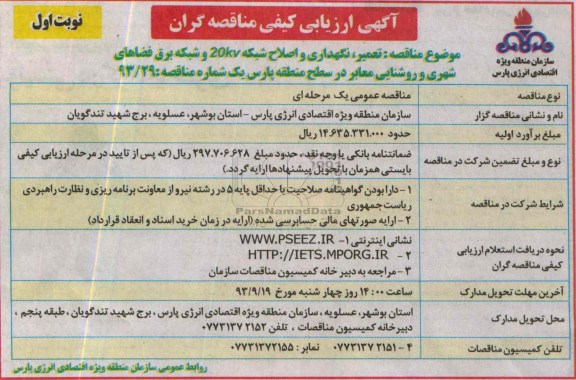 آگهی ارزیابی کیفی مناقصه گران
نوبت اول
سازمان منطقه ویژه
اقتصادی انرژی پارس
موضوع مناقصه : تعمیر، نگهداری و اصلاح شبکه 20kv و شبکه برق فضاهای
شهری و روشنایی معابر در سطح منطقه پارس یک شماره مناقصه : ۹۳/۲۹
نوع مناقصه
مناقصه عمومی یک مرحله ای
نام و نشانی مناقصه گزار
سازمان منطقه ویژه اقتصادی انرژی پارس - استان بوشهر، عسلویه ، برج شهید تندگویان
مبلغ برآورد اولیه
حدود ۱۴،۶۳۵،۳۳۱،۰۰۰ ریال
نوع و مبلغ تضمین شرکت در مناقصه
ضمانتنامه بانکی یا وجه نقد ، حدود مبلغ ۲۹۷،۷۰۶،۶۲۸ ریال (که پس از تایید در مرحله ارزیابی کیفی
بایستی همزمان با تحویل پیشنهادها ارایه گردد.)
شرایط شرکت در مناقصه
۱- دارا بودن گواهینامه صلاحیت با حداقل پایه ۵ در رشته نیرو از معاونت برنامه ریزی و نظارت راهبردی
ریاست جمهوری
۲- ارایه صورتهای مالی حسابرسی شده (ارایه در زمان خرید اسناد و انعقاد قرارداد)
ParsNamadData
نحوه دریافت استعلام ارزیابی
کیفی مناقصه گران
نشانی اینترنتی ۱- WWW.PSEEZ.IR
۲- HTTP://IETS.MPORG.IR
۳- مراجعه به دبیر خانه کمیسیون مناقصات سازمان
آخرین مهلت تحویل مدارک
ساعت ۱۴:۰۰ روز چهار شنبه مورخ ۹۳/۹/۱۹
محل تحویل مدارک
استان بوشهر، عسلویه ، سازمان منطقه ویژه اقتصادی انرژی پارس ، برج شهید تندگویان ، طبقه پنجم ،
دبیرخانه کمیسیون مناقصات ، تلفن ۲۱۵۲ ۰۷۷۳۱۳۷
تلفن کمیسیون مناقصات
۴ - ۲۱۵۱ ۰۷۷۳۱۳۷ نمابر : ۰۷۷۳۱۳۷۲۱۵۵
روابط عمومی سازمان منطقه ویژه اقتصادی انرژی پارس